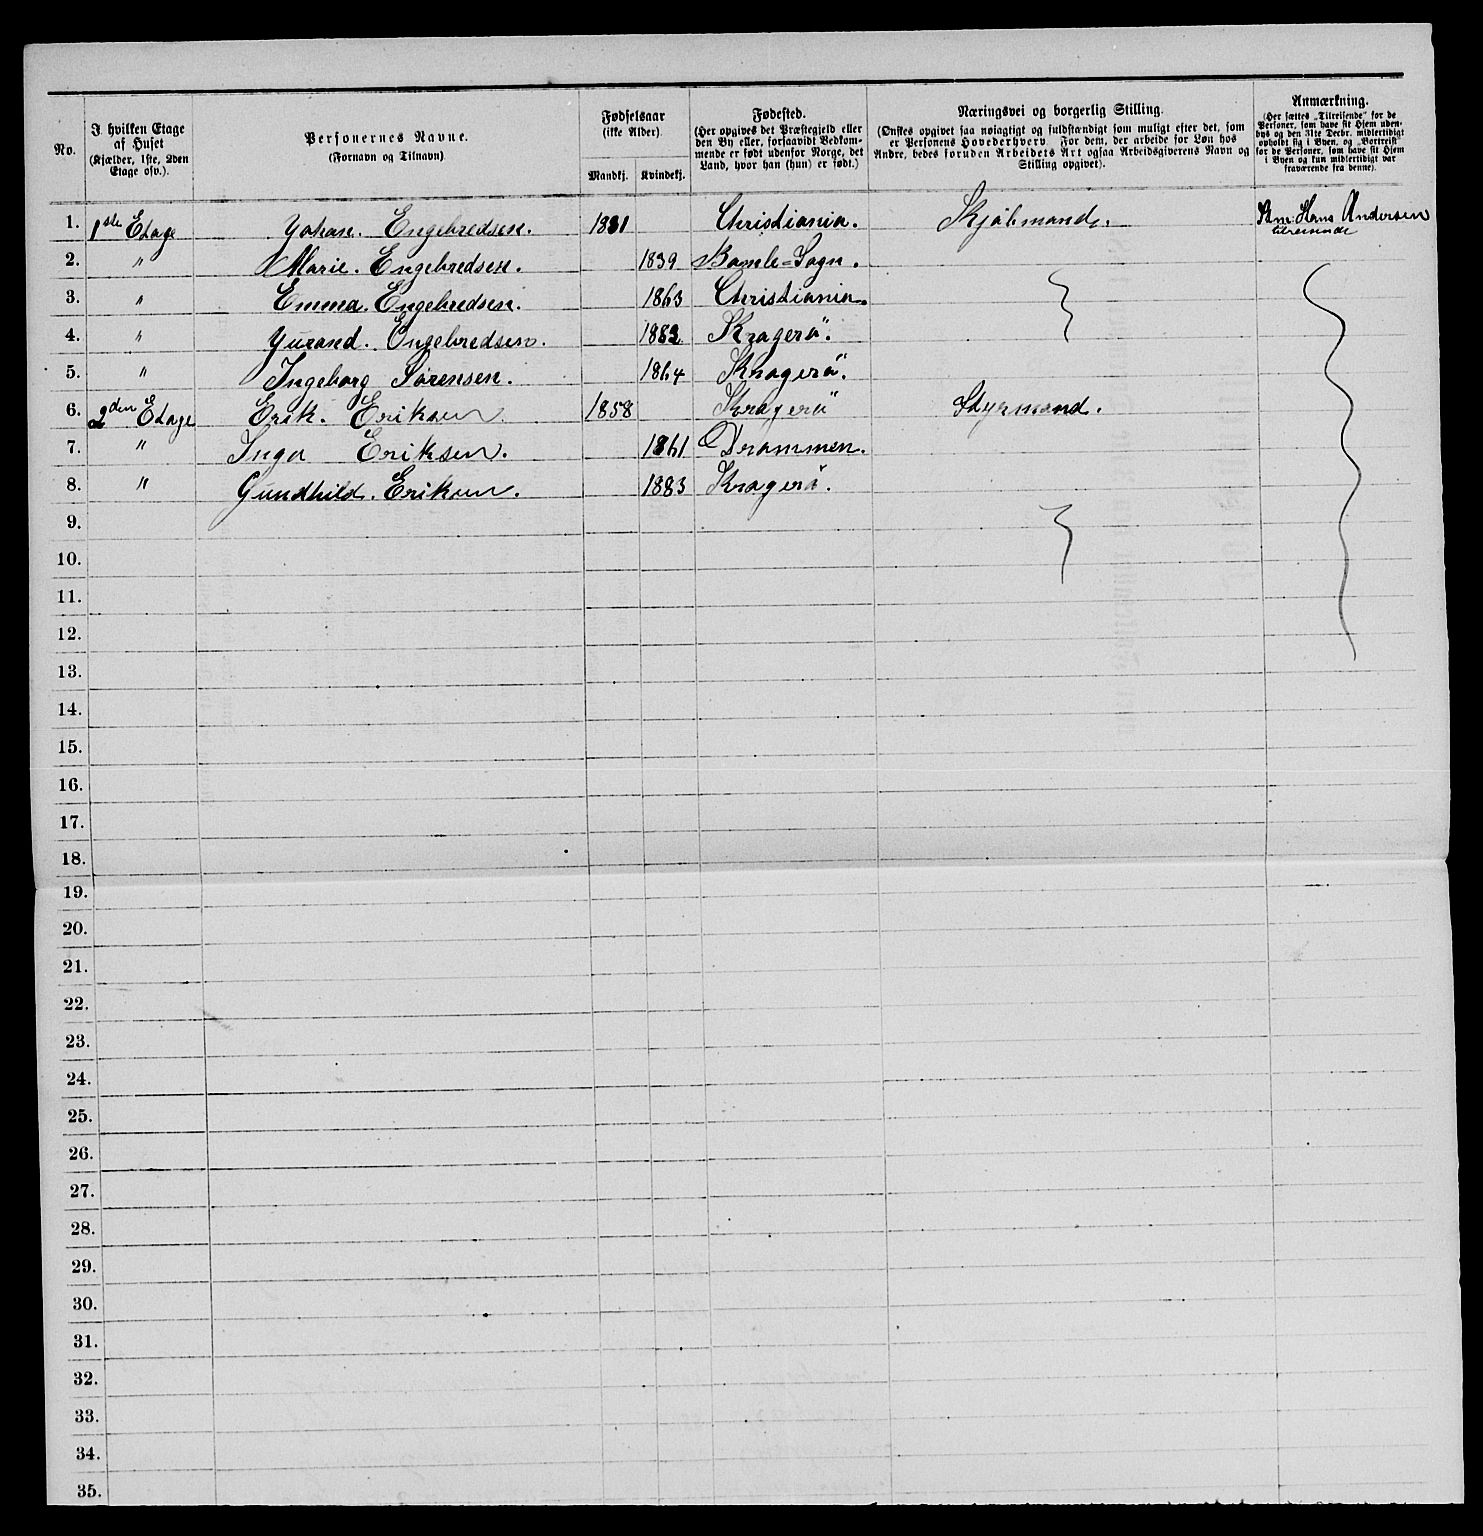 No.
I hvilken Etage
af Huset
(Kjælder, 1ste, 2den
Etage osv.).
Personernes Navne.
(Fornavn og Tilnavn).
Fødselsaar
(ikke Alder).
Mandkj.
Kvindekj.
Fødested.
(Her opgives det Præstegjeld eller
den By eller, forsaavidt Vedkom-
mende er født udenfor Norge, det
Land, hvor han (hun) er født.)
Næringsvei og borgerlig Stilling.
(Ønskes opgivet saa nøiagtigt og fuldstændigt som muligt efter det, som
er Personens Hovederhverv. For dem, der arbeide for Løn hos
Andre, bedes foruden Arbeidets Art ogsaa Arbeidsgiverens Navn og
Stilling opgivet).
Anmærkning.
(Her sættes „Tilreisende“ for de
Personer, som have sit Hjem uden-
bys og den 31te Decbr. midlertidigt
opholdt sig i Byen, og „Bortreist“
for de Personer, som have sit Hjem
i Byen og kun midlertidigt var
fraværende fra denne).
1. 1ste Etage Johan. Engebredsen. 1831 Christiania. Hans Andersen
2. " Marie. Engebredsen. 1839 Bamle=Sogn.
3. " Emma. Engebredsen. 1863 Christiania.
4. " Engebredsen. Kragerö.
5. " Ingeborg Sørensen. 1864 Kragerö.
6. 2den Etage Erik. Eriksen. 1858 Kragerö Styrmand.
7. " Inga Eriksen. 1861 Drammen.
8. " Gundhild. Eriksen. 1883 Kragerö.
9.
10.
11.
12.
13.
14.
15.
16.
17.
18.
19.
20.
21.
22.
23.
24.
25.
26.
27.
28.
29.
30.
31.
32.
33.
34.
35.